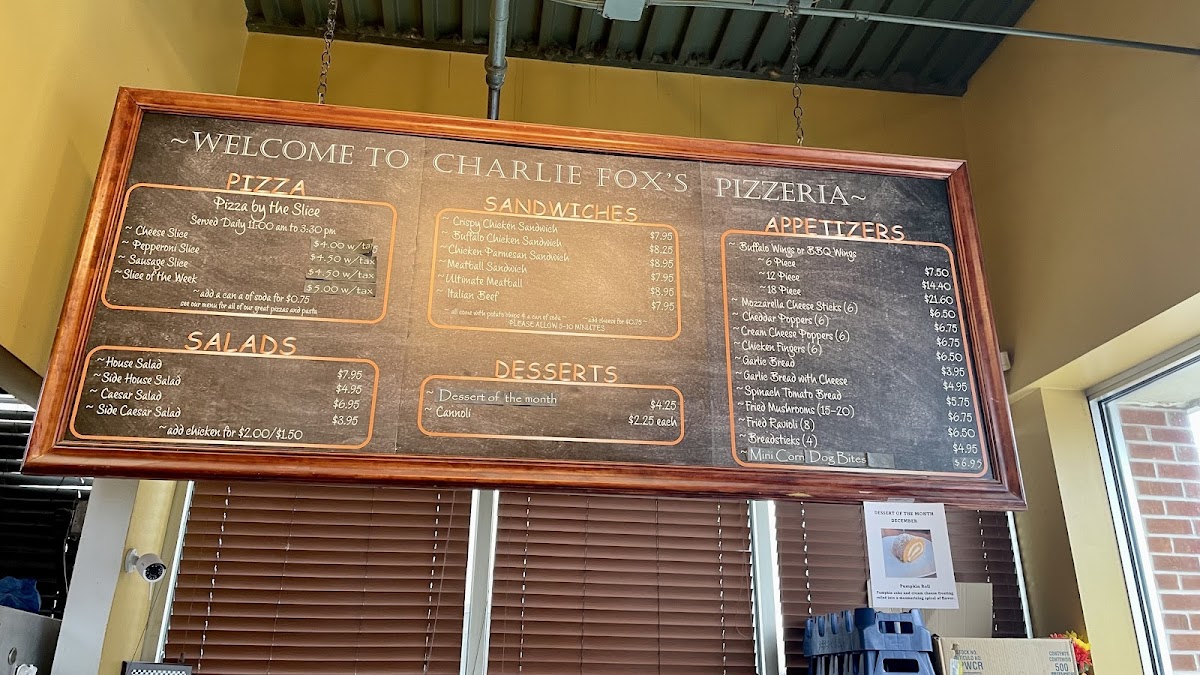 ~WELCOME TO CHARLIE FOX'S PIZZERIA~
PIZZA
Pizza by the Slice
Served Daily 11:00 am to 3:30 pm
~ Cheese Slice $4.00 w/tax
~ Pepperoni Slice $4.50 w/tax
~ Sausage Slice $4.50 w/tax
~Slice of the Week $5.00 w/tax
~add a can a of soda for $0.75
see our menu for all of our great pizzas and pasta
SALADS
~House Salad $7.95
~Side House Salad $4.95
~ Caesar Salad $6.95
~ Side Caesar Salad $3.95
~add chicken for $2.00/$1.50
SANDWICHES
~ Crispy Chicken Sandwich $7.95
~ Buffalo Chicken Sandwich $8.25
~Chicken Parmesan Sandwich $8.95
~Meatball Sandwich $7.95
~Ultimate Meatball $8.95
~ Italian Beef $7.95
~ all come with potato chips & a can of soda ~ ~add cheese for $0.75 ~
PLEASE ALLOW 5-10 MINUTES
DESSERTS
~ Dessert of the month $4.25
~ Cannoli $2.25 each
APPETIZERS
~ Buffalo Wings or BBQ Wings
~6 Piece $7.50
~12 Piece $14.40
~18 Piece $21.60
~ Mozzarella Cheese Sticks (6) $6.50
~ Cheddar Poppers (6) $6.75
~Cream Cheese Poppers (6) $6.75
~Chicken Fingers (6) $6.50
~Garlic Bread $3.95
~Garlic Bread with Cheese $4.95
~Spinach Tomato Bread $5.75
~Fried Mushrooms (15-20) $6.75
~Fried Ravioli (8) $6.50
~Breadsticks (4) $4.95
~Mini Corn Dog Bites $6.95
DESSERT OF THE MONTH
DECEMBER
Pumpkin Roll
Pumpkin cake and cream cheese frosting
rolled into a mesmerizing spiral of flavor.
STOCK NO.
PWCR
CONTENTS
500